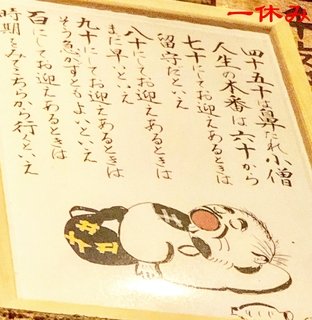 一休み
四十五十は鼻たれ小僧
人生の本番は六十から
七十にしてお迎えあるときは
留守だといえ
八十にしてお迎えあるときは
まだ早いといえ
九十にしてお迎えあるときは
そう急がずともよいといえ
百にしてお迎えあるときは
時期をみてこちらから行くといえ